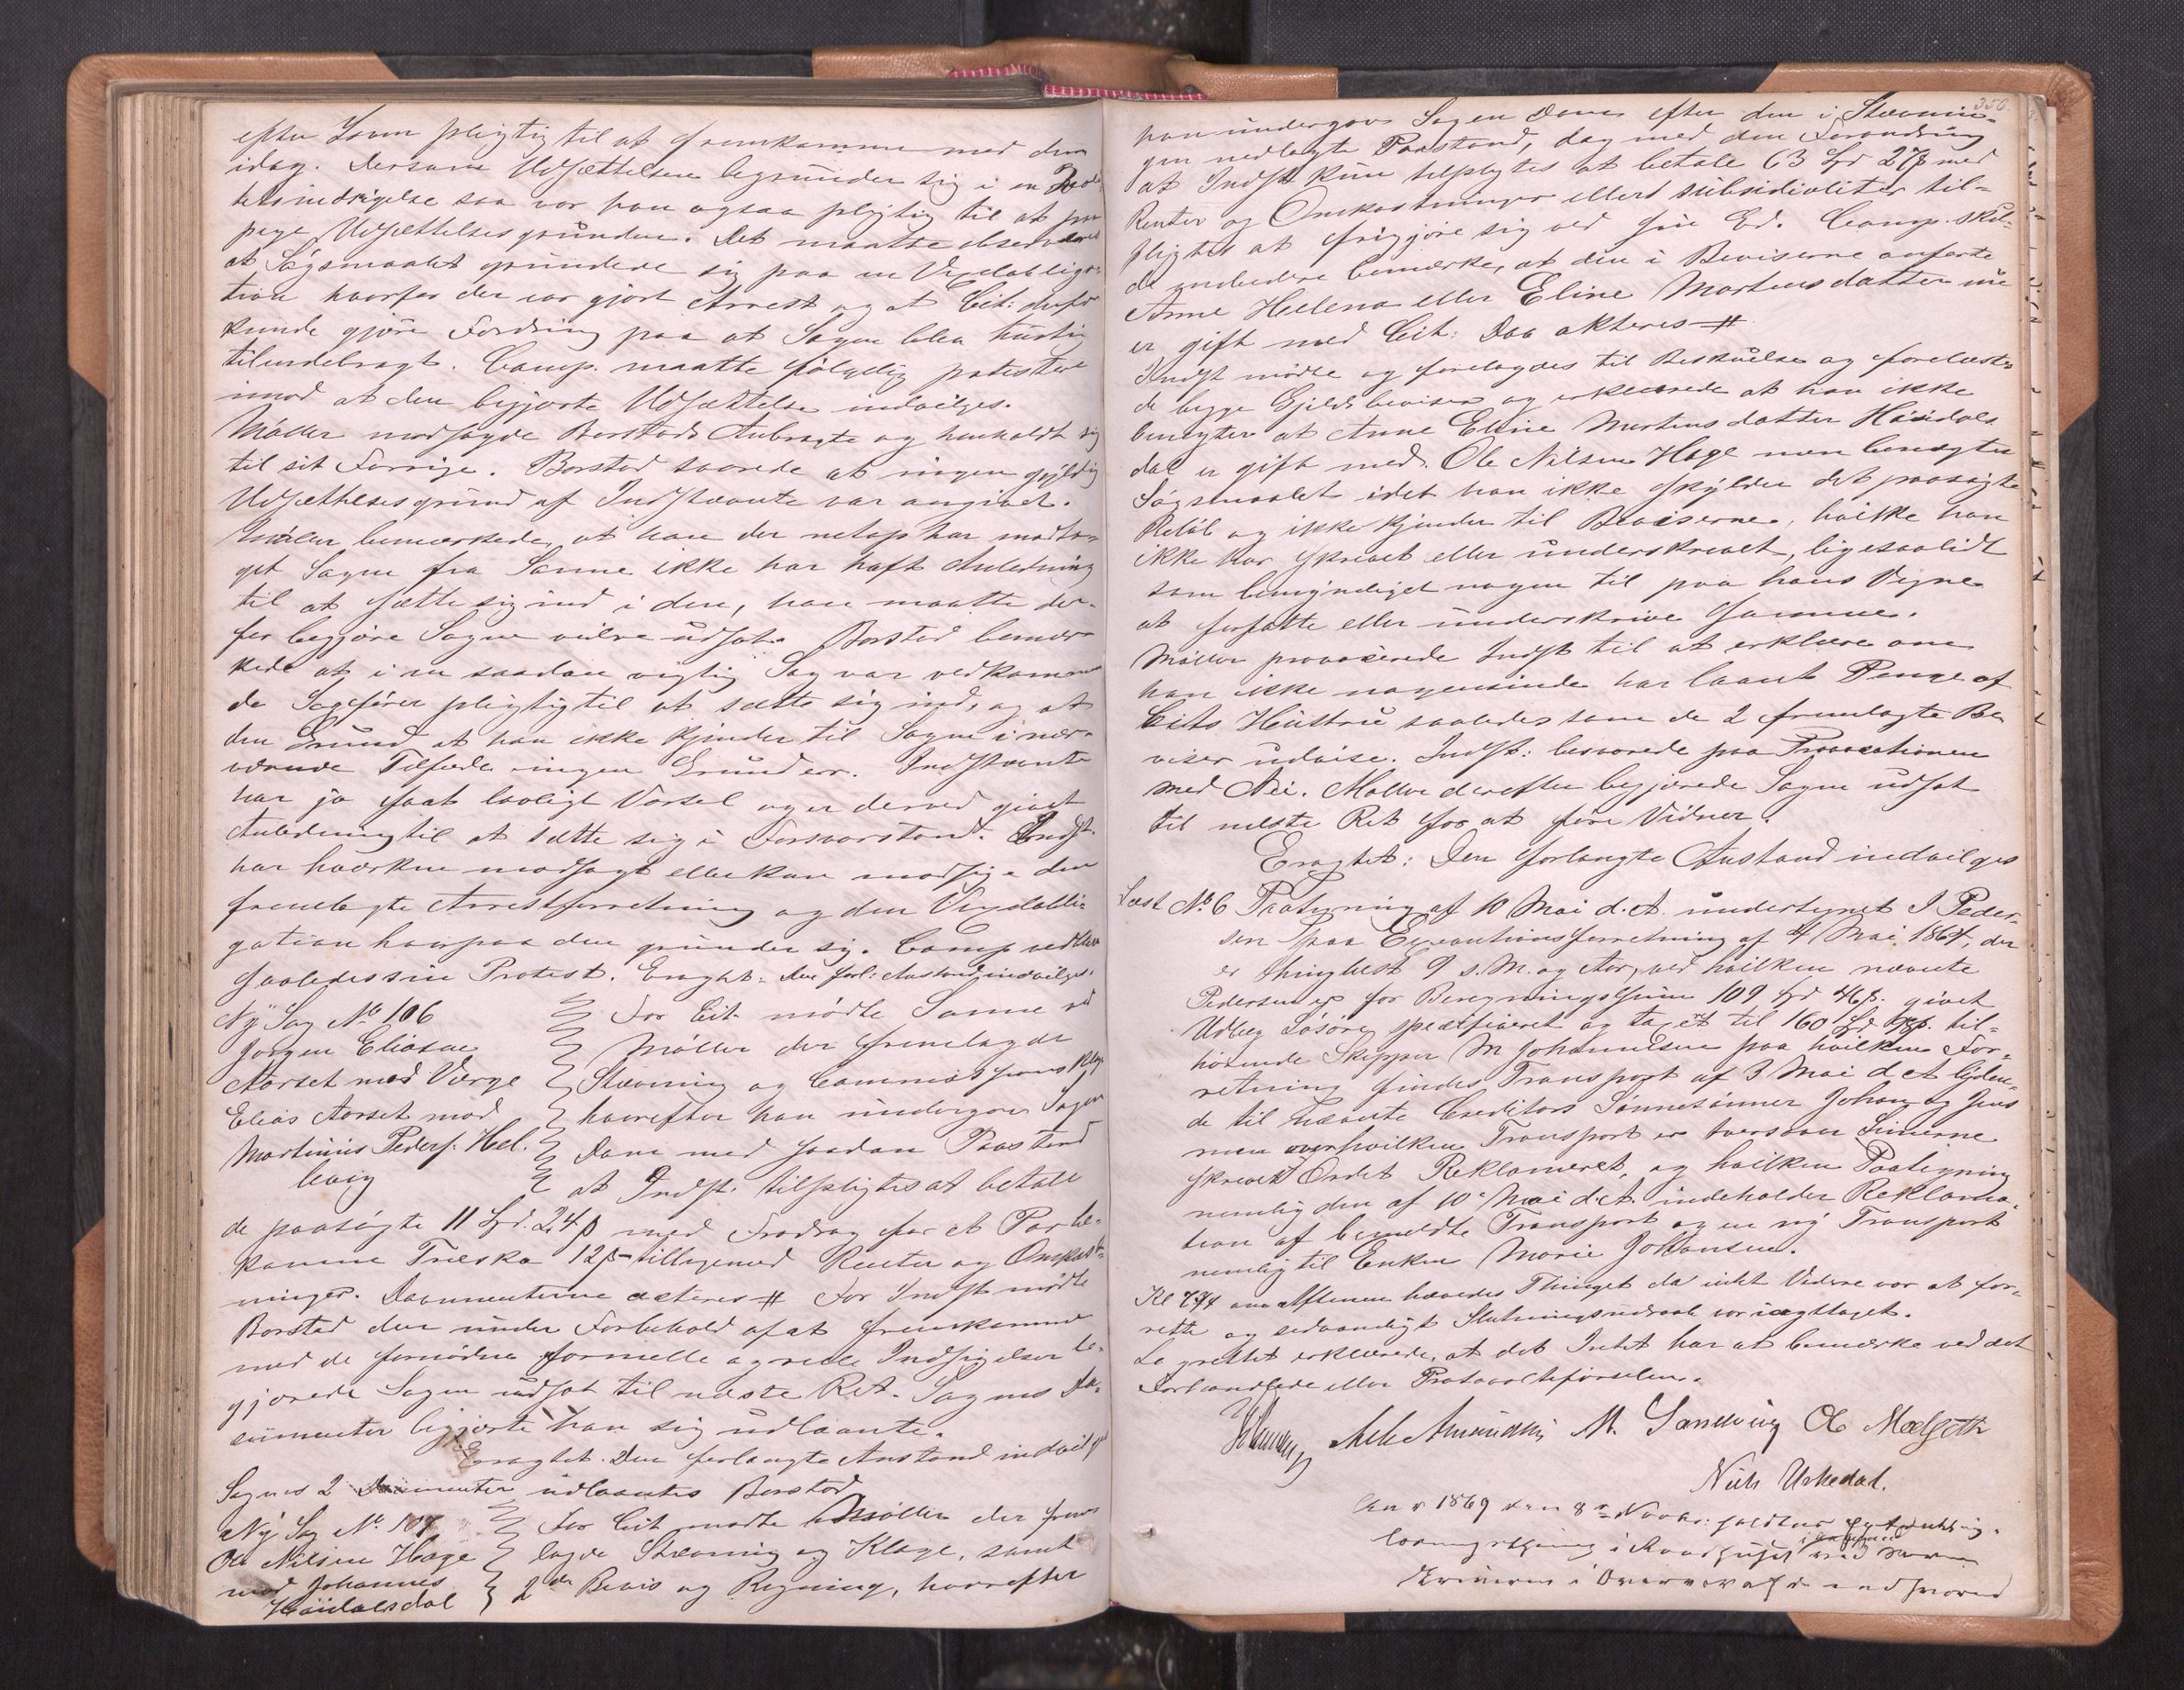 efter Loven pligtig til at fremkomme med dem
idag. Dersom Udsættelsen begrunder sig i en
indsigelse saa var han ogsaa pligtig til at
Udsættelsesgrunden. Det maatte
at Søgsmaalet grundede sig paa en Vexelobliga-
tion hvorfor der var gjort Arrest og at Cit: derfor
kunde gjøre Fordring paa at Sagen blev hurtig
tilendebragt. Comp. maatte følgelig protestere
imod at den begjærte Udsættelse indvilges.
Møller modsagde Borstads Anbragte og henholdt sig
til sit Forrige. Borstad svarede at ingen gyldig
Udsættelsesgrund af Indstævnte var angivet.
Møller bemærkede, at han der netop har modta-
get Sagen fra Sanne ikke har haft Anledning
til at sætte sig ind i den, han maatte der-
for begjære Sagen videre udsat. Borstad bemær-
kede at i en saadan vigtig Sag var vedkommen
de Sagfører pligtig til at sætte sig ind, og at
den Grund at han ikke kjender til Sagen i nær-
værende Tilfælde ingen Grund er. Indstævnte
har jo faaet lovligt Varsel og er derved givet
Anledning til at sætte sig i Forsvarstand. Indst.
har hverken modsagt eller kan modsige den
fremlagte Arrestforretning og den Vexelobli-
gation hvorpaa den grunder sig. Comp. vedblev
saaledes sin Protest. Eragt: Den forl: Anstand indvilges.
Ny Sag No 106
Jørgen Eliasen
Aarset med Værge
Elias Aarset mod
Martinus Peders. Hel-
levig
For Cit. mødte Sanne ved
Møller der fremlagde
Stævning og Commissions Klage
hvorefter han undergav Sagen
Dom med saadan Paastand
at Indst. tilpligtes at betale
de paasøgte 11 Spd. 24 β med Fradrag for et Par be-
komne Træsko 12 β tilligemed Renter og Omkost-
ninger. Documenterne acteres # For Indst mødte
Borstad der under Forbehold af at fremkomme
med de fornødne formelle og reelle Indsigelser be-
gjærede Sagen udsat til næste Ret. Sagens Do-
cumenter begjærte han sig udlaante.
Eragtet. Den forlangte Anstand indvilges
Sagens 2 Documenter udlaantes Borstad
Ny Sag No 107
Ole Nilsen Hage
mod Johannes
Høidalsdal
For Cit mødte Møller der frem
lagde Stævning og Klage, samt
2de Bevis og Regning, hvorefter
356.
han undergav Sagen Dom efter den i Stævnin-
gen nedlagte Paastand, dog med den Forandring
at Indst kun tilpligtes at betale 63 Spd 27 β med
Renter og Omkostninger ellers subsidialiter til-
pligtes at frigjøre sig ved sin Ed. Comp. skul-
de endvidere bemærke, at den i Beviserne anførte
Anne Helena eller Eline Martensdatter nu
er gift med Cit: Doc akteres #
Indst mødte og forelagdes til Beskuelse og forelæstes
de begge Gjeldsbeviser og erklærede at han ikke
benegter at Anne Eline Martensdatter Høidals
dal er gift med Ole Nilsen Hage men benegter
Søgsmaalet idet han ikke skylder det paasøgte
Beløb og ikke kjender til Beviserne, hvilke han
ikke har skrevet eller underskrevet, ligesaalidt
som bemyndiget nogen til paa hans Vegne
at forfatte eller underskrive samme.
Møller provocerede Indst til at erklære om
han ikke nogensinde har laant Penge af
Cits Hustru saaledes som de 2 fremlagte Be
viser udvise. Indst: besvarede paa Provocationen
med Nei. Møller derefter begjærede Sagen udsat
til næste Ret for at føre Vidner.
Eragtet: Den forlangte Anstand indvilges
Læst No 6 Paategning af 10 Mai d.A. undertegnet I Peder-
sen paa Executionsforretning af 4 Mai 1864, der
er thinglæst 9 s.M. og Aar, ved hvilken nævnte
Pedersen er for Beregningssum 109 Spd 46 β. givet
Udlæg Løsøre specificeret og taxeret til 160 Spd til-
hørende Skipper M Johannesen paa hvilken For-
retning findes Transport af 3 Mai d A lyden-
de til nævnte Creditors Sønnesønner Johan og Jens
men over hvilken Transport er tversover Linierne
skrevet Ordet Reklameret, og hvilken Paategning
nemlig den af 10 Mai d.A. indeholder Reklama-
tion af bemeldte Transport og en ny Transport
nemlig til Enken Marie Johansen.
Kl 7¾ om Aftenen hævedes Thinget da intet Videre var at for-
rette og sedvanligt Slutningsudraab var iagttaget.
Lagrettet erklærede, at det Intet har at bemærke ved det
Forhandlede eller Protocoltilførselen.
Amundsen M. Sandvig O Mælseth
Nils Urkedal.
Aar 1869 den 8de Novbr: holdtes